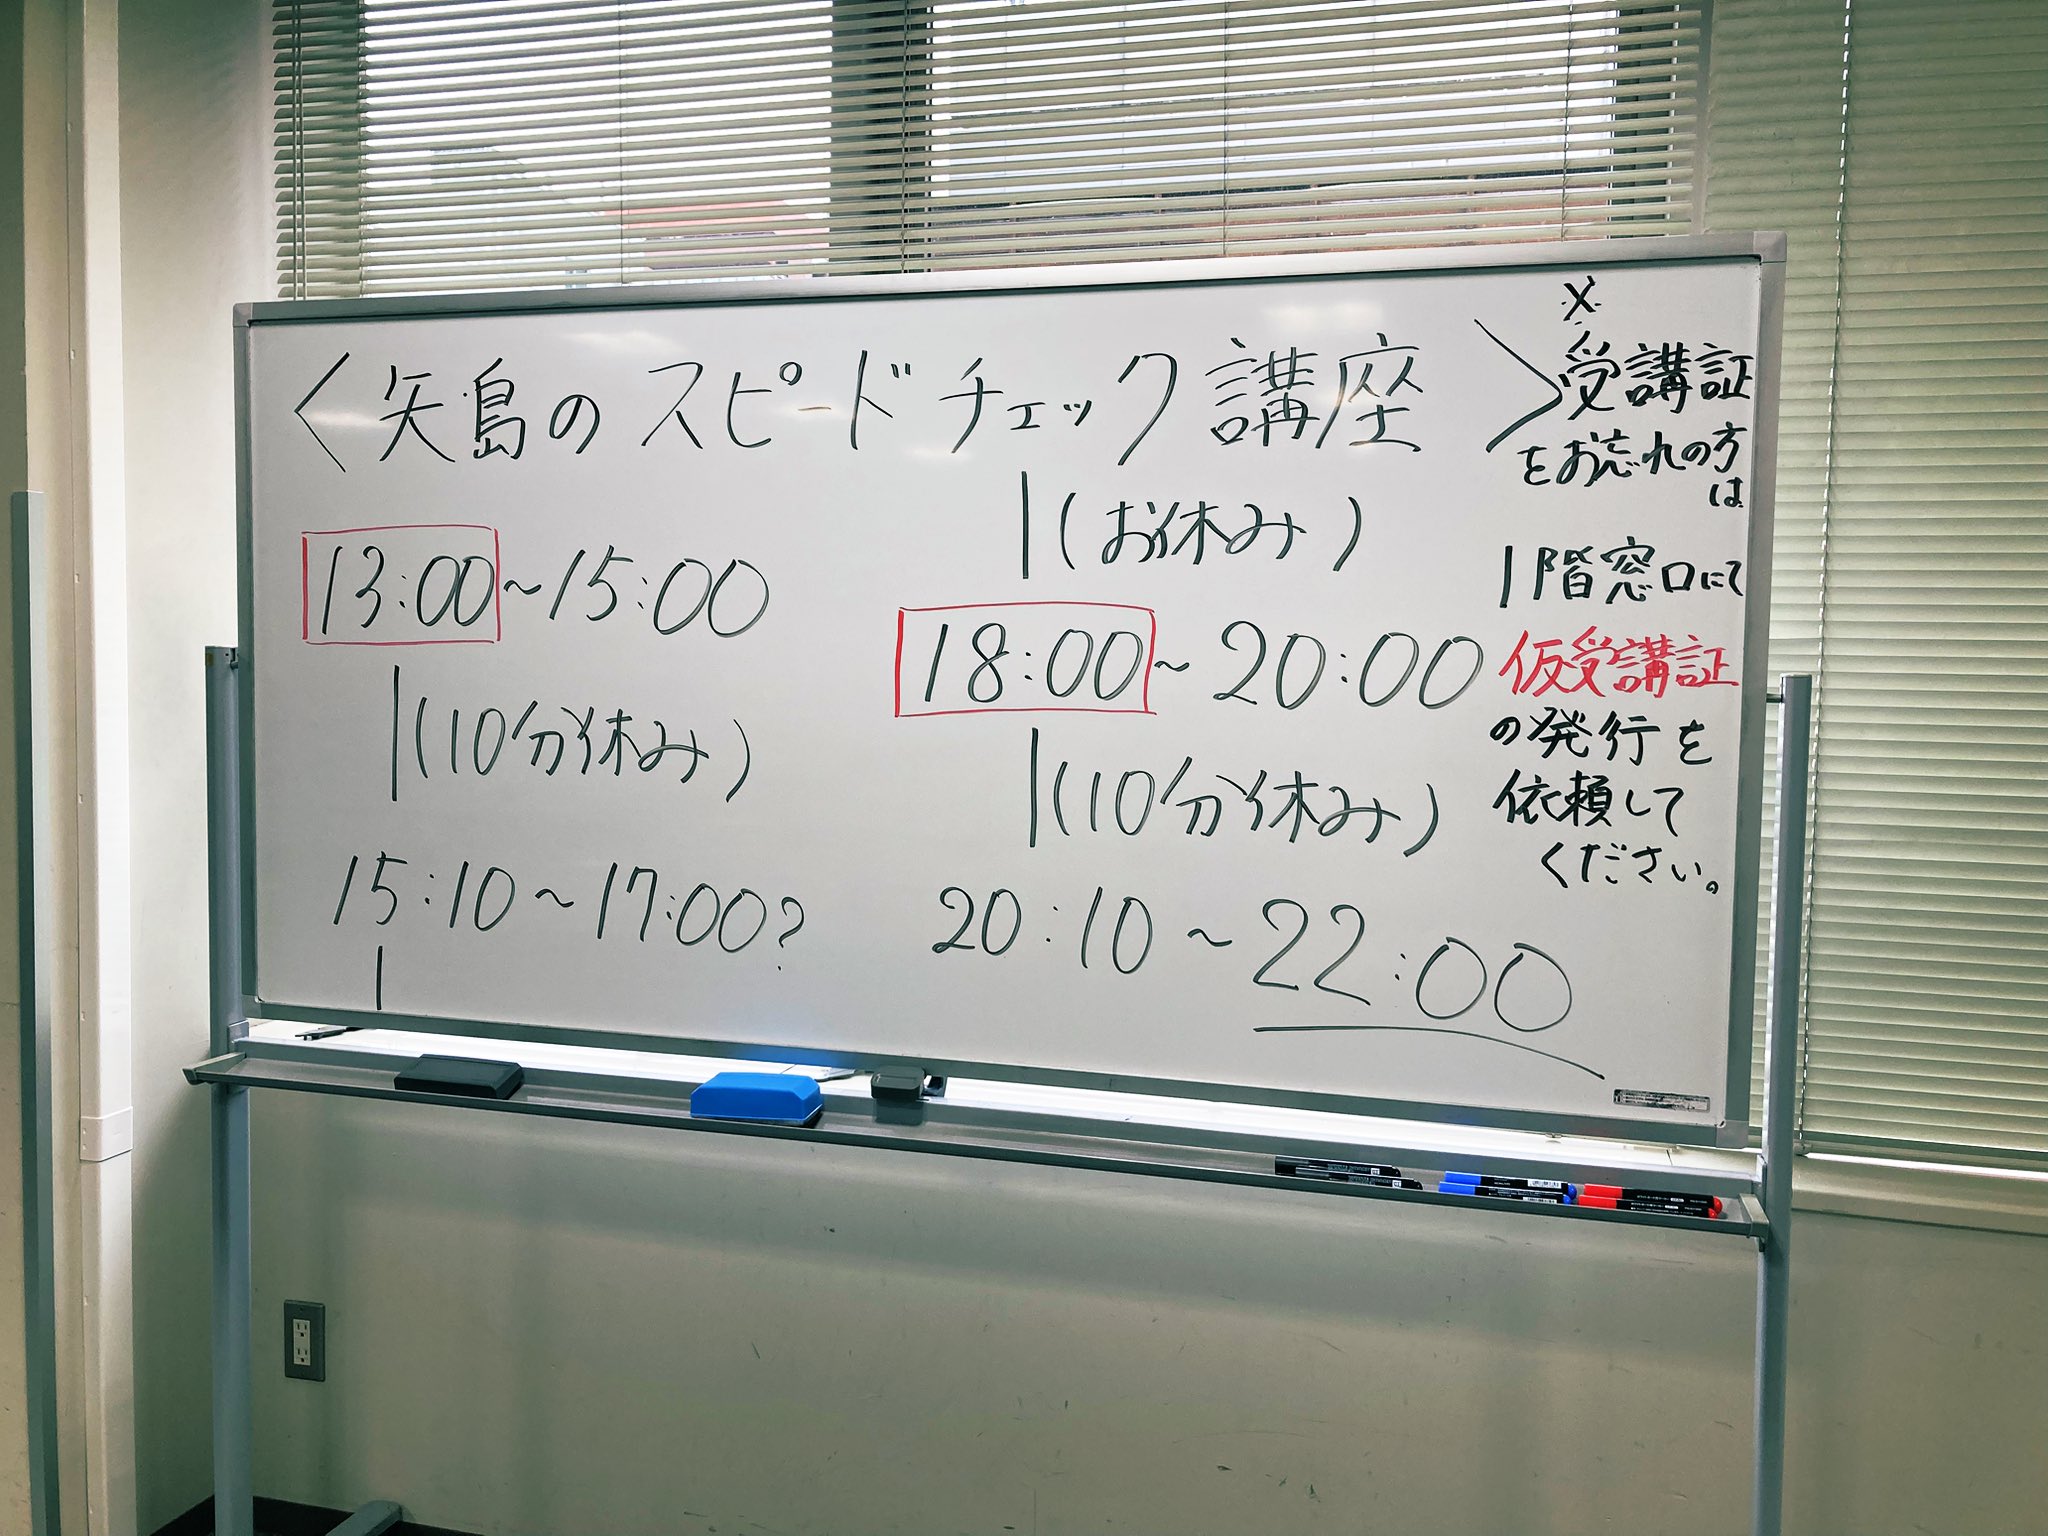 〈矢島のスピードチェック講座〉
13:00~15:00
|(10分休み)
15:10~17:00?
|
|(お休み)
18:00~20:00
|(10分休み)
20:10~22:00
※
受講証
をお忘れの方
は
1階窓口にて
仮受講証
の発行を
依頼して
ください。